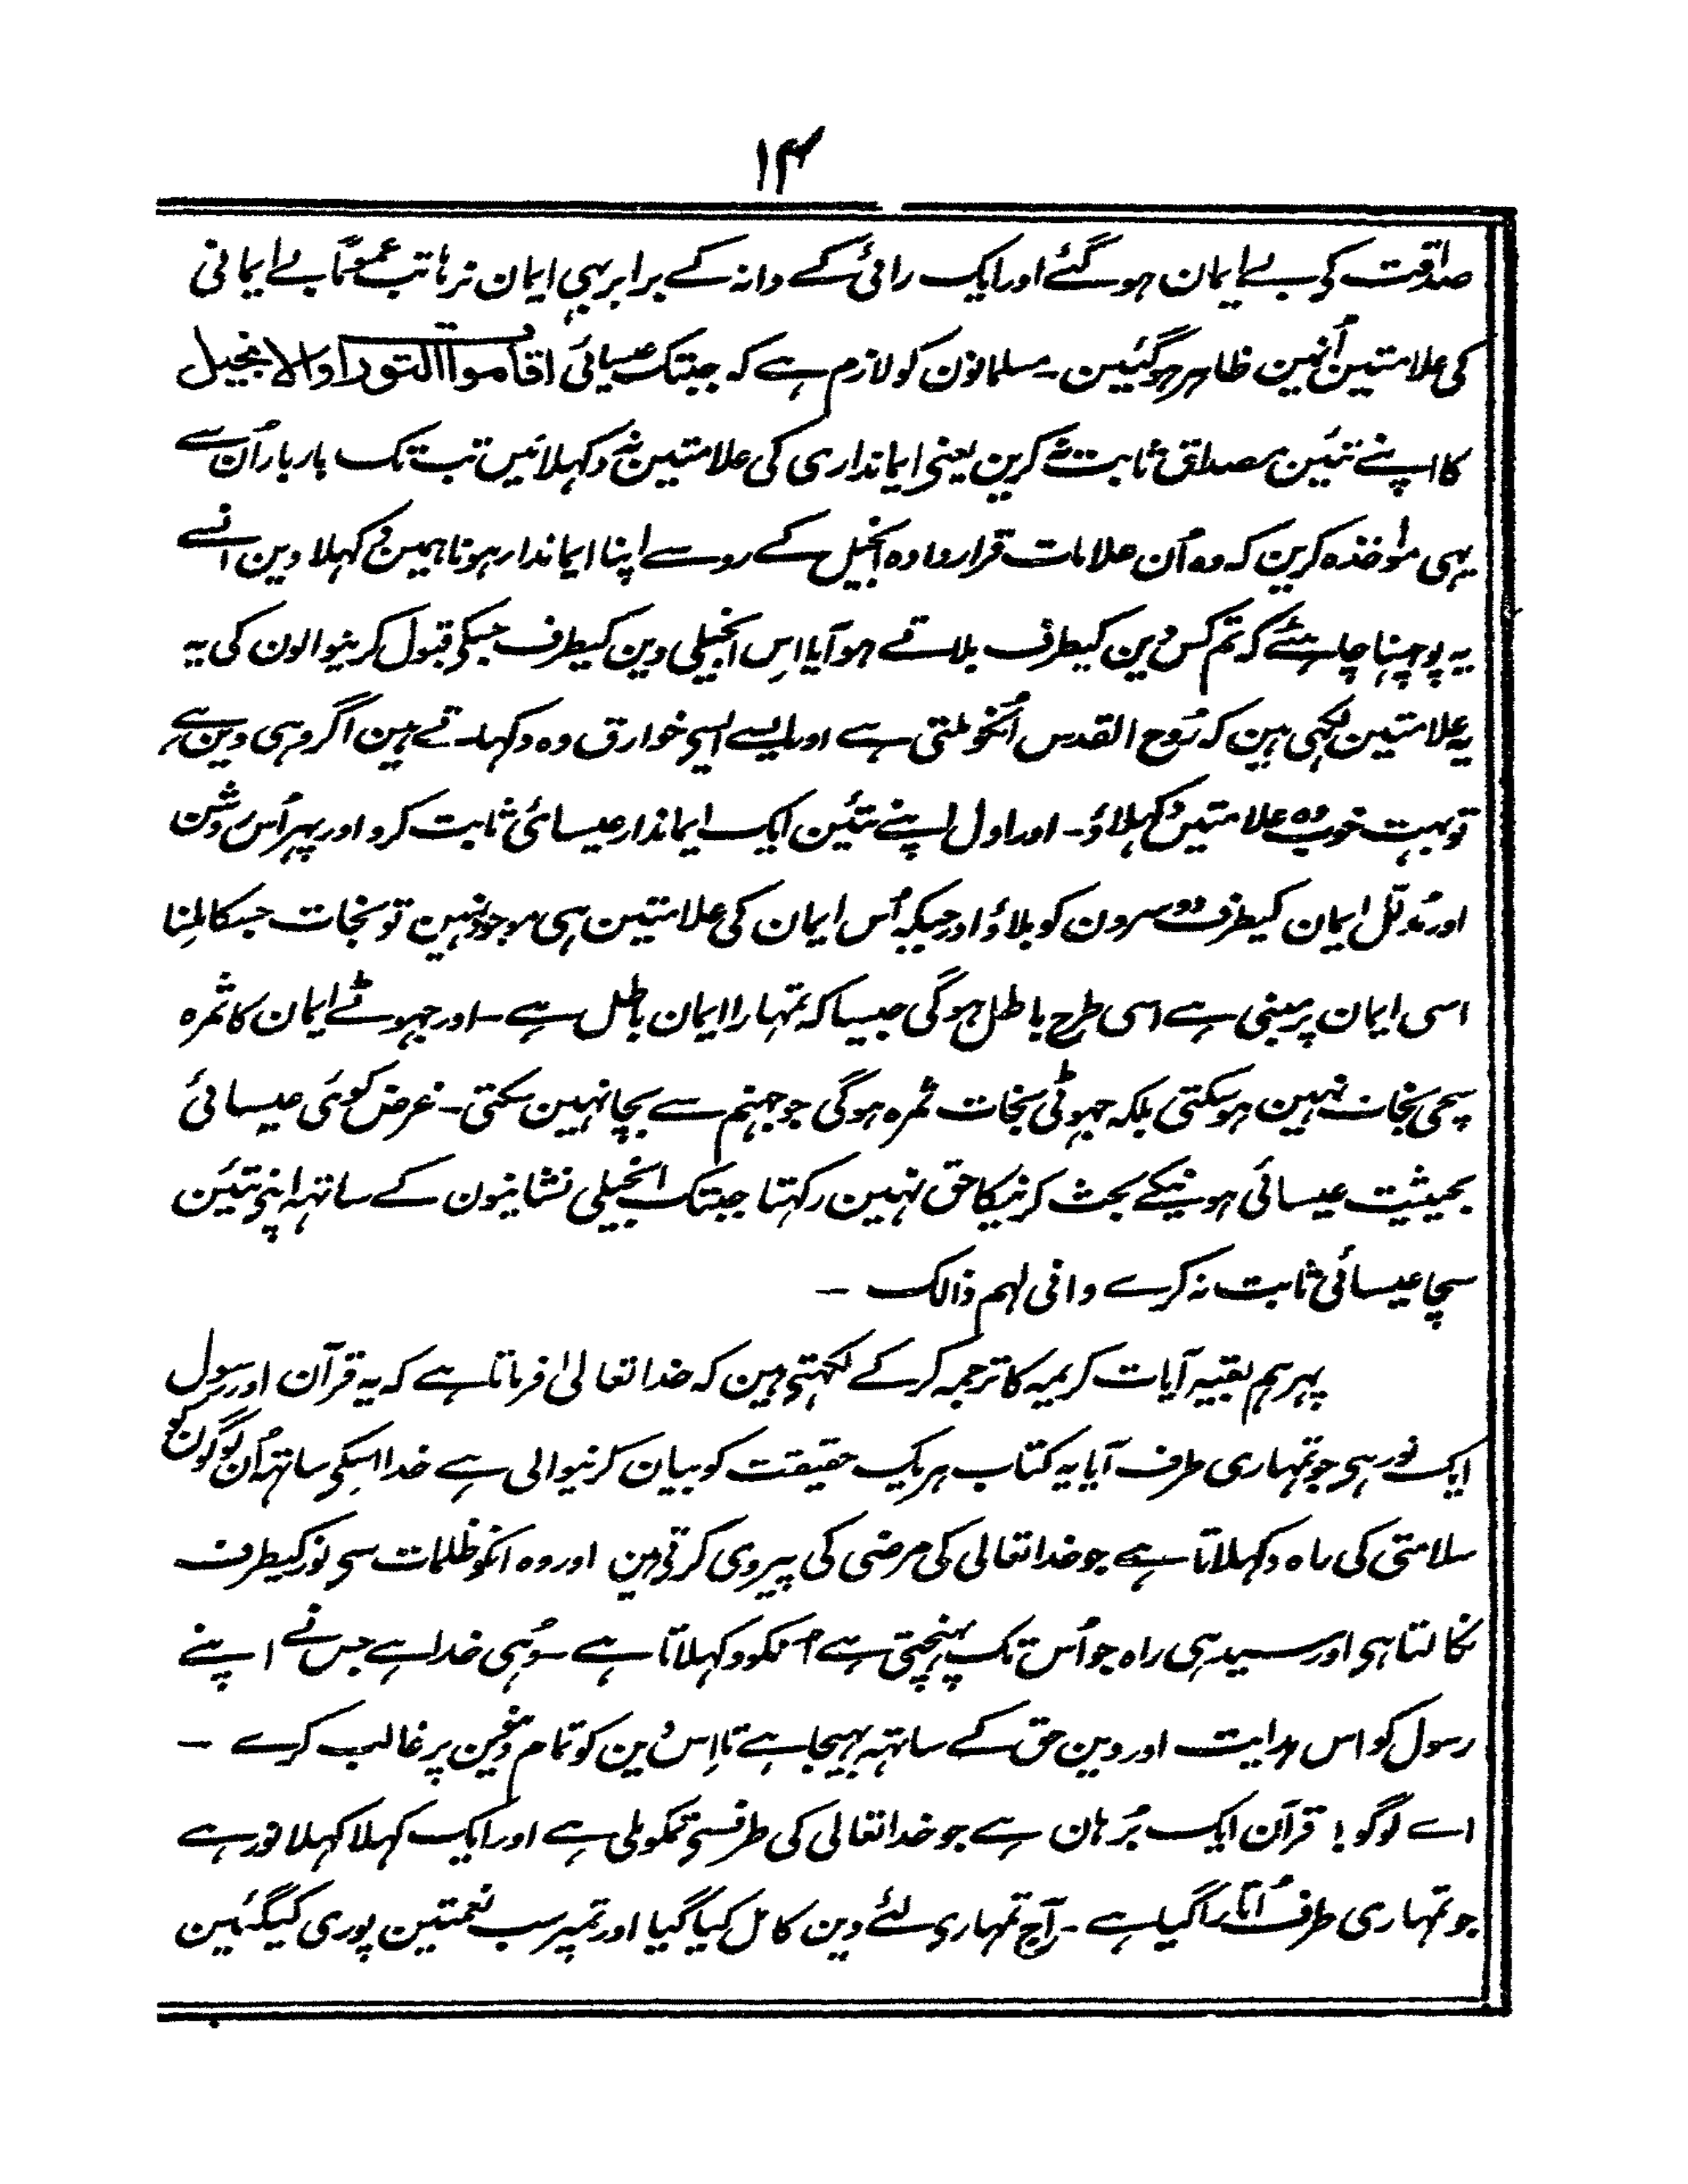 ۱۴
صداقت کی بے ایمان ہو گئے اور ایک رائی کے دانہ کے برابر بہی ایمان نرہا تب عمومًا بے ایمانی
کی علامتین اُنہین ظاہر ہوگئیین۔ مسلمانون کو لازم ہے کہ جبتک عیسائی اقاموا التوراۃ والانجیل
کا اپنے تئین مصداق ثابت نہ کرین یعنی ایمانداری کی علامتین نہ دکہلائیں تب تک بار بار اُن سے
یہی مواخذہ کرین کہ وہ اُن علامات قرار دادہ انجیل کے رو سے اپنا ایماندار ہونا ہمین دکہلا دین انسے
یہ پوچہنا چاہئیے کہ تم کس دین کیطرف بلاتے ہو آیا اِس انجیلی دین کیطرف جسکی قبول کرنیوالون کی یہ
یہ علامتین لکہی ہین کہ رُوح القدس اُنکو ملتی ہے اور ایسے ایسی خوارق وہ دکہلاتے ہین اگر وہی دین ہے
تو بہت خوب وہ علامتین دکہلاؤ۔ اور اول اپنے تئین ایک ایماندار عیسائی ثابت کرو اور پہر اُس روشن
اور مدلّل ایمان کیطرف دوسرون کو بلاؤ اور جبکہ اُس ایمان کی علامتین ہی موجود نہین تو نجات جسکا ملنا
اسی ایمان پر مبنی ہے اسی طرح باطل ہوگی جیسا کہ تمہارا ایمان باطل ہے۔ اور جہوٹے ایمان کا ثمرہ
سچی نجات نہین ہو سکتی بلکہ جہوٹی نجات ثمرہ ہوگی جو جہنم سے بچا نہین سکتی۔ غرض کوئی عیسائی
بحیثیت عیسائی ہونیکے بحث کرنیکا حق نہین رکہتا جبتک انجیلی نشانیون کے ساتہہ اپنی تئین
سچا عیسائی ثابت نہ کرے وانی لہم ذالک ۔
پہر ہم بقیہ آیات کریمہ کا ترجمہ کر کے لکہتی ہین کہ خدا تعالیٰ فرماتا ہے کہ یہ قرآن اور رسول
ایک نور ہی جو تمہاری طرف آیا یہ کتاب ہر یک حقیقت کو بیان کرنیوالی ہے خدا اسکی ساتہہ اُن لوگون کو
سلامتی کی راہ دکہلاتا ہے جو خدا تعالی کی مرضی کی پیروی کرتی ہین اور وہ انکو ظلمات سی نور کیطرف
نکالتا ہی اور سیدہی راہ جو اُس تک پہنچتی ہے اُنکو دکہلاتا ہے سو وُہی خدا ہے جس نے اپنے
رسول کو اس ہدایت اور دین حق کے ساتہہ بہیجا ہے تا اِس دین کو تمام دینون پر غالب کرے ۔
اے لوگو ! قرآن ایک بُرہان ہے جو خدا تعالی کی طرف سی تمکو ملی ہے اور ایک کہلا کہلا نور ہے
جو تمہاری طرف اُتارا گیا ہے ۔ آج تمہاری لئے دین کامل کیا گیا اور تمپر سب نعمتین پوری کیگئین